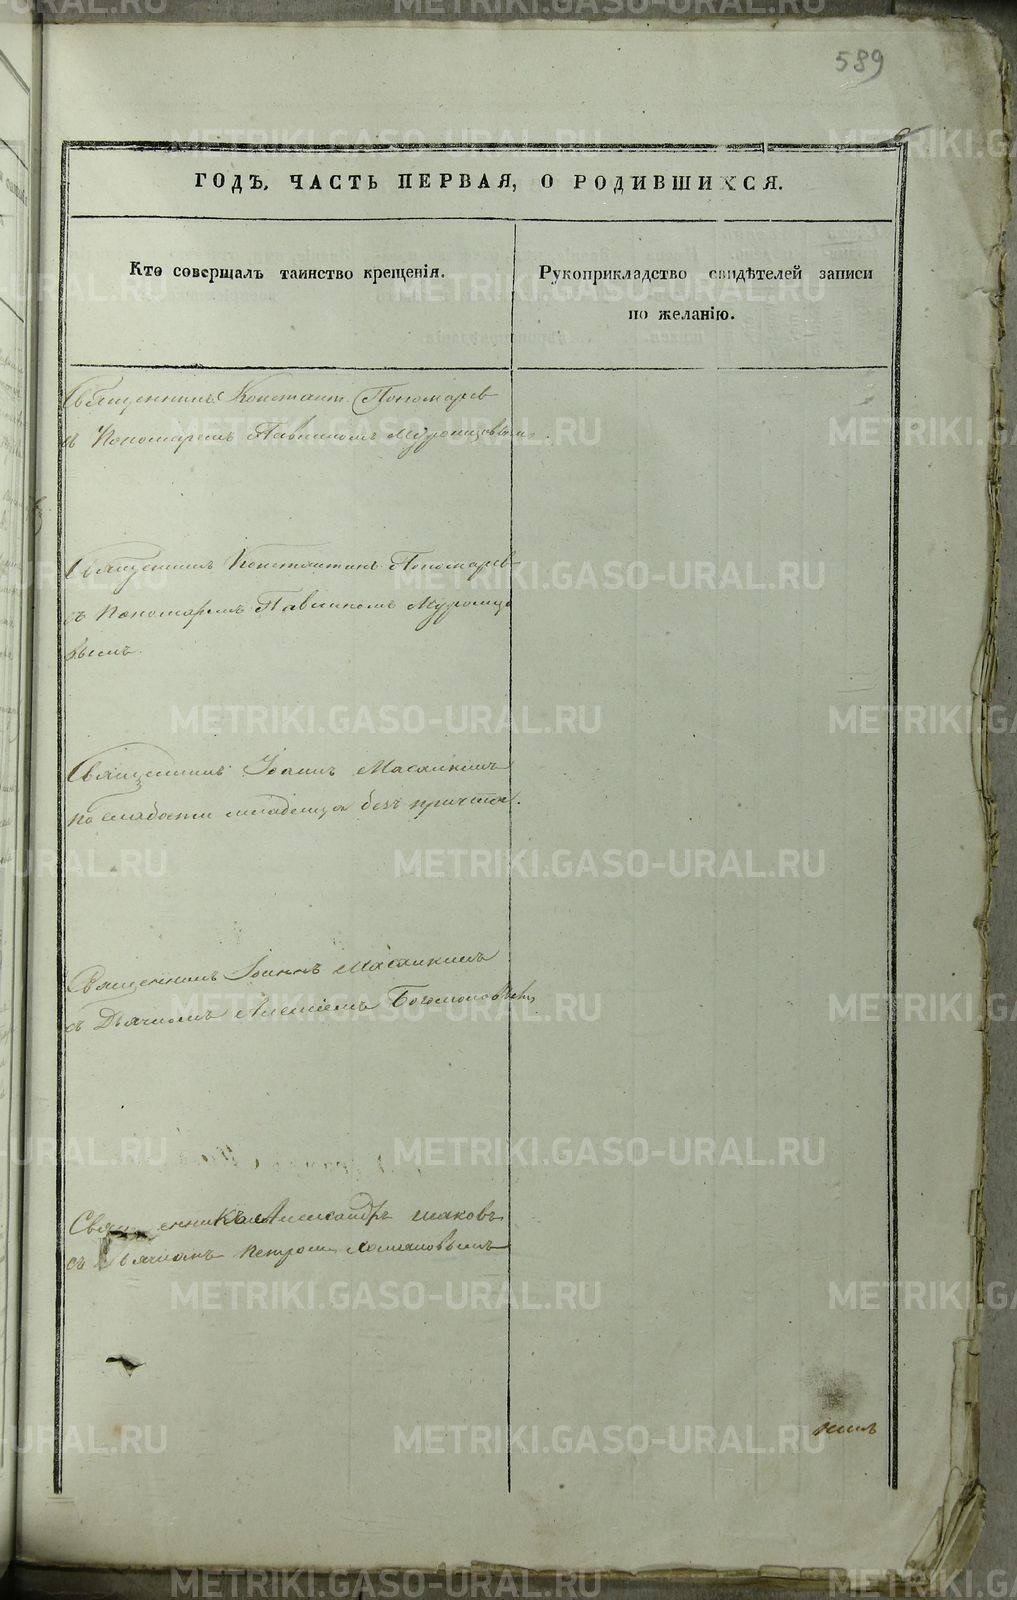 589
ГОДЪ, ЧАСТЬ ПЕРВАЯ, О РОДИВШИХСЯ.
Кто совершалъ таинство крещенія.
Рукоприкладство свидѣтелей записи
по желанію.
Священникъ Констант. Пономарев
съ Пономаремъ Павлиномъ Муромцовымъ
Священникъ Константинъ Пономарев
съ Пономаремъ Павлиномъ Муромцо
вымъ
Священникъ Іоаннъ
по слабости младенца безъ причта.
Священникъ Іоаннъ
съ Дьячкомъ Алексіемъ
Священникъ Александръ
съ Дьячкомъ Петромъ
METRIKI.GASO-URAL.RU